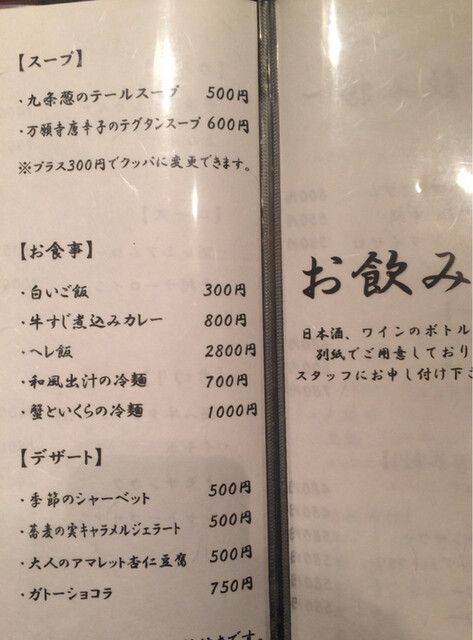 【スープ】
・九条葱のテールスープ 500円
・万願寺唐辛子のテグタンスープ 600円
※プラス300円でクッパに変更できます。
【お食事】
・白いご飯 300円
・牛すじ煮込みカレー 800円
・ヘレ飯 2800円
・和風出汁の冷麺 700円
・蟹といくらの冷麺 1000円
【デザート】
・季節のシャーベット 500円
・蕎麦の実キャラメルジェラート 500円
・大人のアマレット杏仁豆腐 500円
・ガトーショコラ 750円
お飲み
日本酒、ワインのボトル
別紙でご用意しており
スタッフにお申し付け下さ